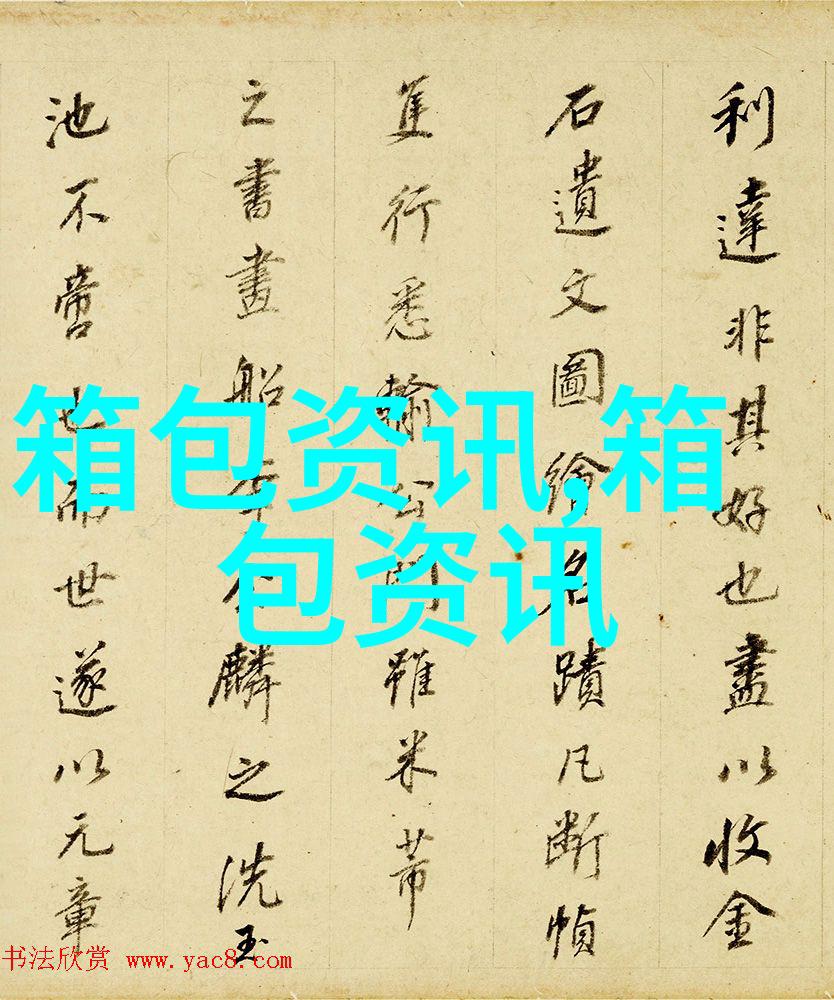 利達非其好也盡以收金
石遺文圖繪名蹟凡斷幀
隻行悉輸公門雖米芾
之書畫船李公麟之洗玉
池不啻也而世遂以元章
箱包资讯,箱
包资讯
书法欣赏 www.yac8.com